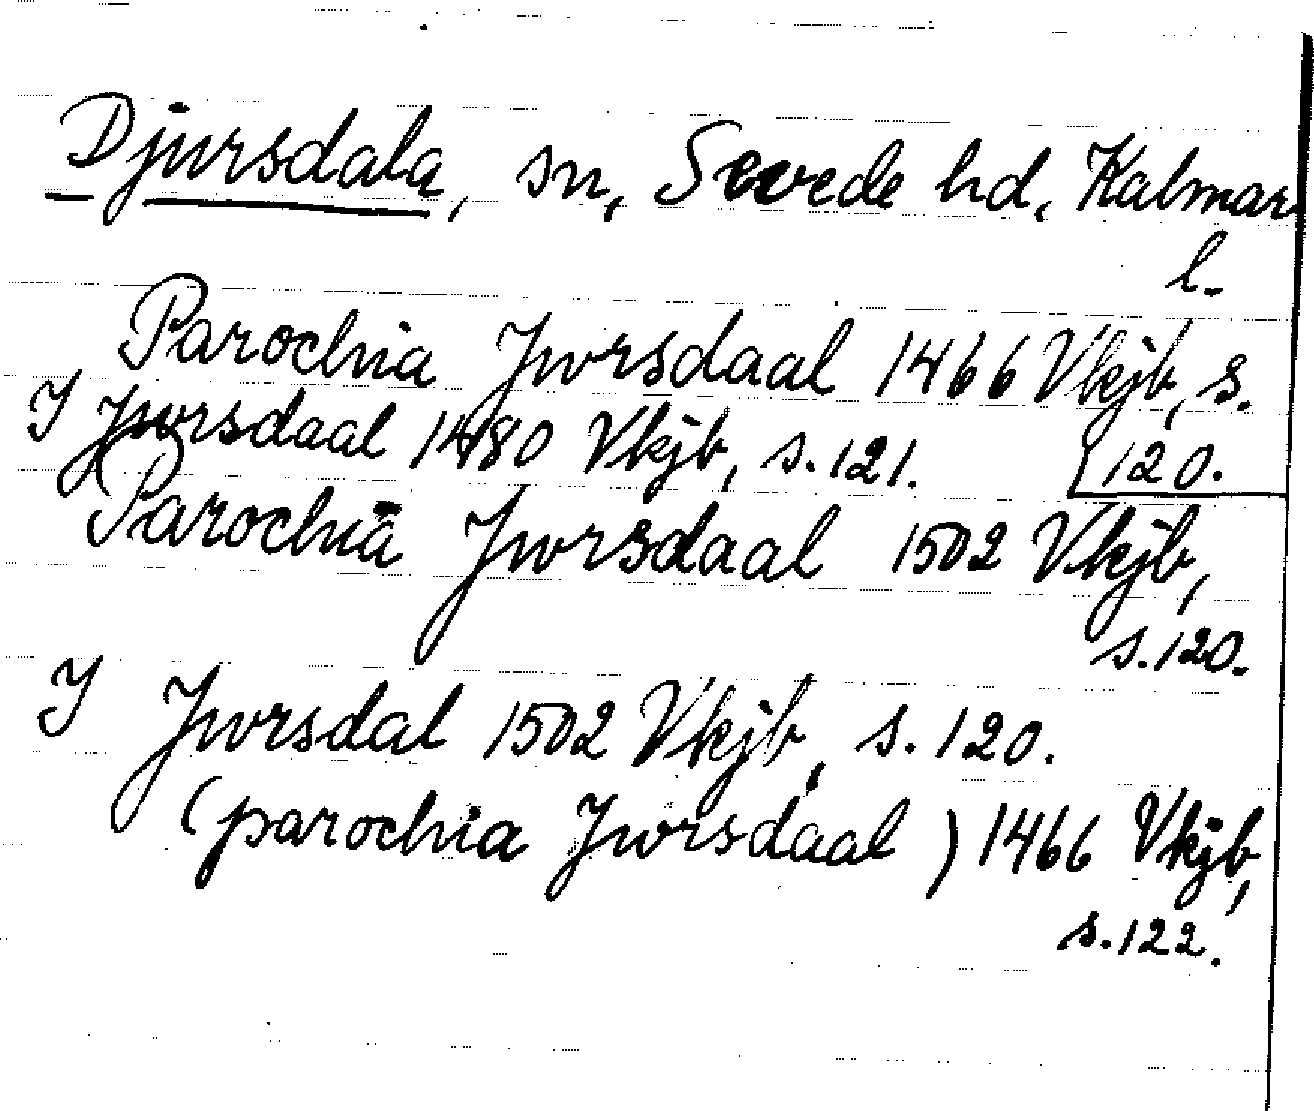 Djursdala, sn, Sevede hd, Kalmar
l.
Parochia Jwrsdaal 1466 Vkjb, s.
[120.
J Jwrsdaal 1480 Vkjb, s. 121.
Parochia Jwrsdaal 1502 Vkjb,
s. 120.
J Jwrsdal 1502 Vkjb, s. 120.
(parochia Jwrsdaal) 1466 Vkjb,
s. 122.